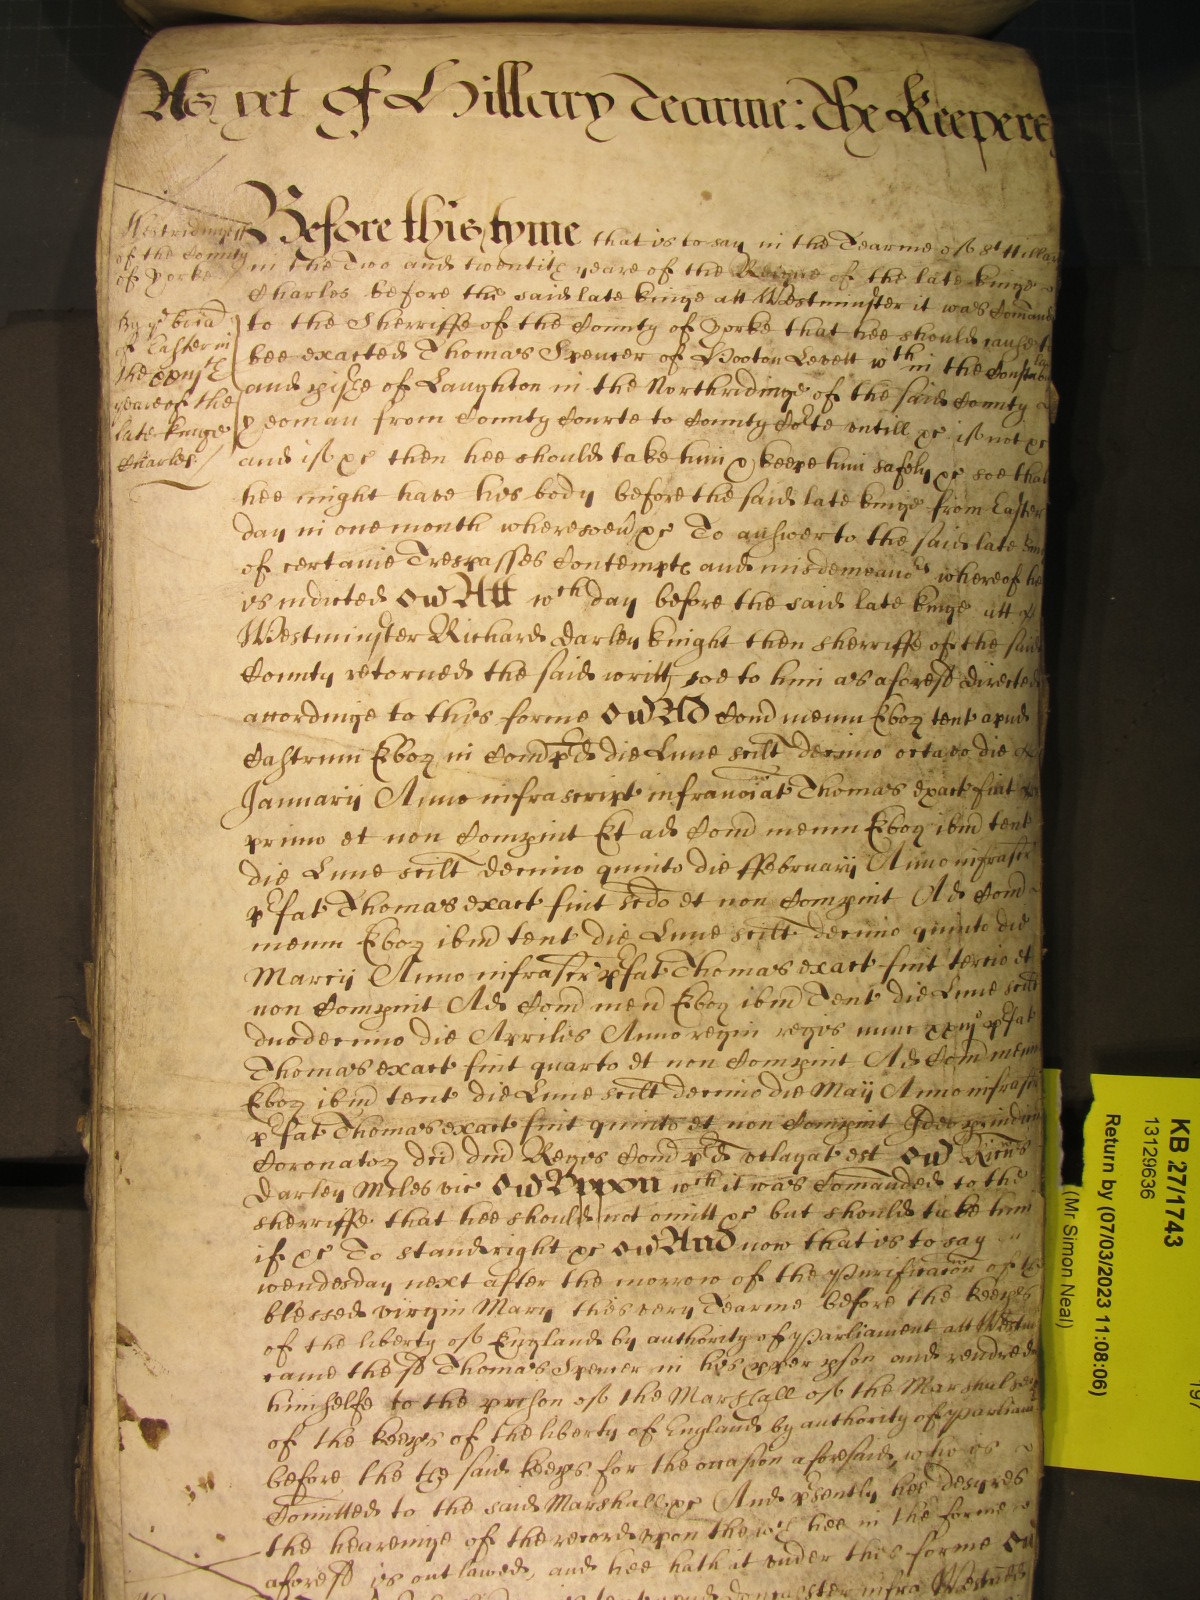 As yet of Hillary Tearme: The Keepers
Westridinge
of the County
of Yorke
By ye bria
of Easter in
the xxiijth
yeare of the
late kinge
Charles
Before this tyme that is to say in the Tearme of St Hillary
in the Two and twentith yeare of the Reigne of the late kinge
Charles before the said late kinge att Westminster it was Comaund
to the Sherriffe of the County of Yorke that hee should cause to
bee exacted Thomas Spencer of Hooton Levett wth in the Constab
and pishe of Laughton in the Northridinge of the said County
Yeoman from County Courte to County Corte untill &c if not &c
and if &c then hee should take him & keepe him safely &c soe that
hee might have his body before the said late kinge from Easter
day in one month wheresoeu &c To answer to the said late kin
of certaine Trespasses Contempts and misdemeanors whereof he
is indicted Att wch day before the said late kinge att
Westminster Richard Darley knight then Sherriffe of the said
County retorned the said writt soe to him as aforesd directed
accordinge to this forme Ad Com meum Ebor tent apud
Castrum Ebor in Com pd die Lune scilt decimo octavo die
Januarij Anno infrascript infranoiat Thomas exact fuit
primo et non Compuit Et ad Com meum Ebor ibm tent
die Lune scilt decimo quinto die ffebruarij Anno infrascr
pfat Thomas exact fuit scdo et non Compuit Ad Com
meum Ebor ibm tent die Lune scilt decimo quinto die
Marcij Anno infrascr pfat Thomas exact fuit tercio et
non Compuit Ad Com meu Ebor ibm Tent die Lune scilt
duodecimo die Aprilis Anno regni regis nunc xxiijo pfat
Thomas exact fuit quarto et non Compuit Ad Com meum
Ebor ibm tent die Lune scilt decimo die Maij Anno infrascr
pfat Thomas exact fuit quinto et non Compuit Ideo p iudiciu
Coronator dci dni Regis Com pd utlagat est Ricus
Darley Miles vic Uppon wch it was Comaunded to the
sherriffe that hee should not omitt &c but should take him
if &c To stand right &c And now that is to say
wendesday next after the morrow of the Purificacon of the
blessed virgin Mary this very Tearme before the keeps
of the liberty of England by authority of Parliament att Westm
came the sd Thomas Spencer in his pper pson and rendred
himselfe to the prison of the Marshall of the Marshalsey
of the keeps of the liberty of England by authority of Parliam
before the the said keeps for the occasion aforesaid, who is
Comitted to the said Marshall &c And psently hee desyres
the heareinge of the record upon the wch hee in the forme
aforesd is outlawed, and hee hath it under this forme
KB 27/1743
13129636
Return by (07/03/2023 11:08:06)
(Mr Simon Neal)